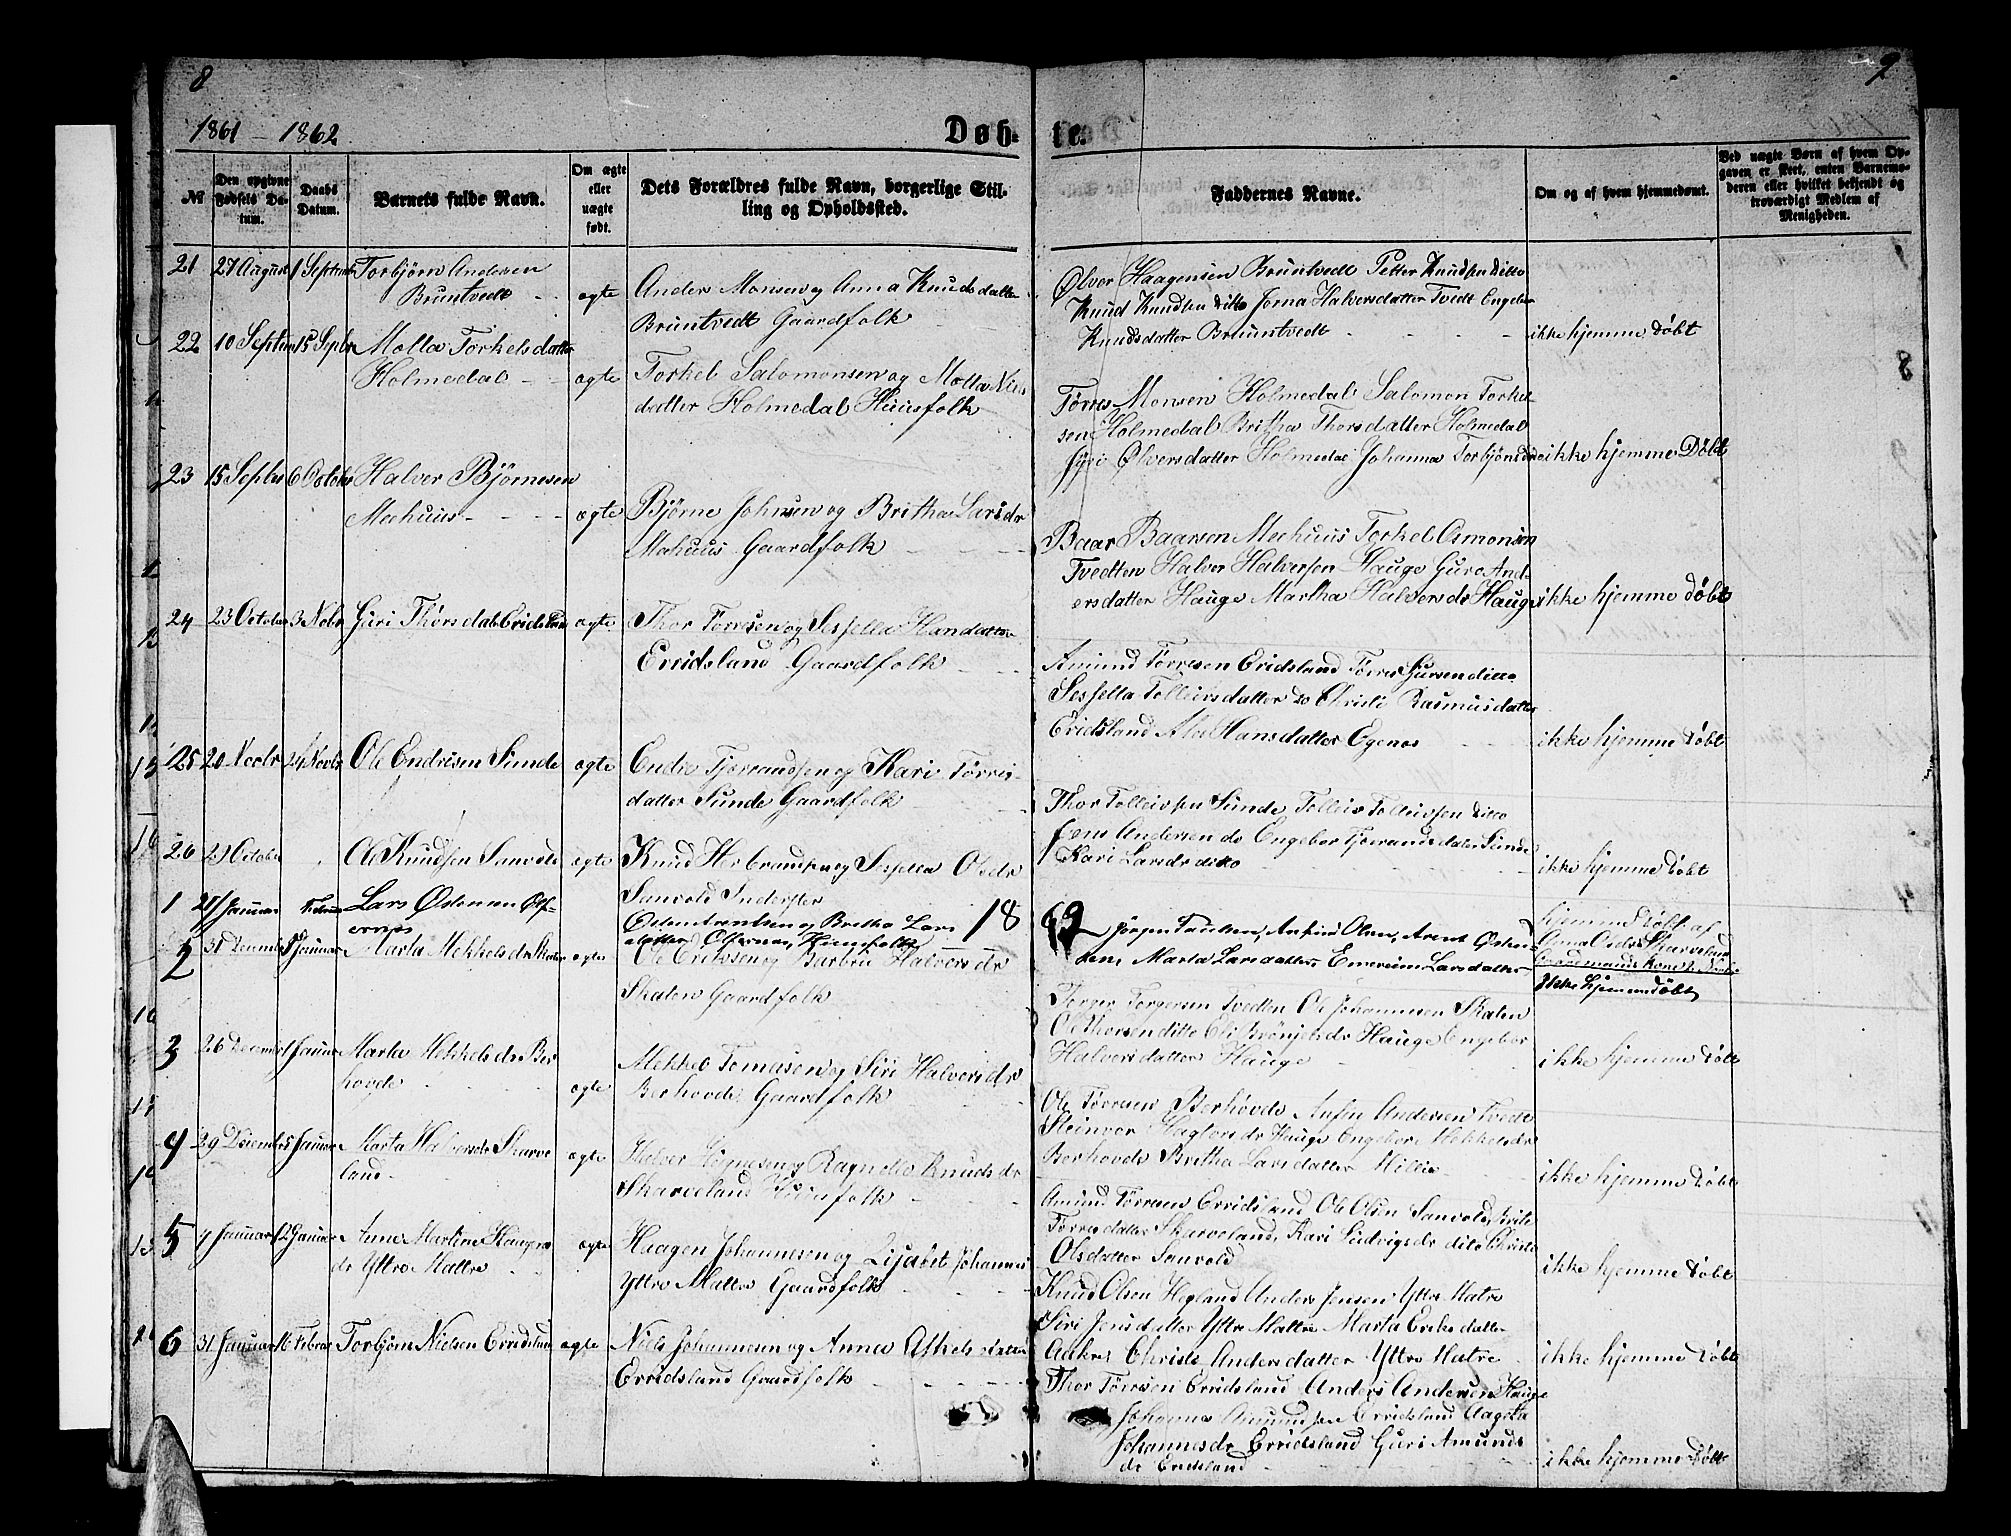 8
9
1861 - 1862
Døb-
te.
№
Den opgivne Fødsels Datum.
Daabs Datum.
Barnets fulde Navn.
Om ægte eller uægte født.
Dets Forældres fulde Navn, borgerlige Stilling og Opholdssted.
Faddernes Navne.
Om og af hvem hjemmedømt.
Ved uægte Børn af hvem Opgaven er skeet, enten Barnemoderen eller hvilket bekjendt og troværdigt Medlem af Menigheden.
21 27 August 1 Septembr Torbjørn Andersen
Bruntvedt
ægte
Anders Monsen og Anna Knudsdatter
Bruntvedt Gaardfolk
Ølver Haagensen Bruntvedt Petter Knudsen ditto
Knud Knudsen ditto Jorna Halversdatter Tvedt Engebor
Knudsdatter Bruuntvedt
ikke hjemme døbt
22 10 Septem 15 Septbr Molla Torkelsdatter
Holmedal
ægte
Torkel Salomonsen og Molla Niels
datter Holmedal Huusfolk
Tørres Monsen Holmedal Salomon Torkel
sen Holmedal Britha Thorsdatter Holmedal
Ølversdatter Holmedal Johanna
ikke hjemme Døbt
23 15 Septbr 6 Octobr Halver Bjørnesen
Meehuus
ægte
Bjørne Johnsen og Britha Larsdr
Mehuus Gaardfolk
Baar Baarsen Meehuus Torkel Osmonsen
Tvedten Halver Halversen Hauge Guro And-
ersdatter Hauge Martha Halversdr Hauge
ikke hjemme Døbt
24 23 October 3 Nobr Guri Thorsdatr
ægte
Thor Tørresen og Sesselia Hansdatter
Erridsland Gaardfolk
Amund Tørresen Eridsland Tørres ditto
Sesselia Tolleivsdatter do Christi Rasmusdatter
Eridsland Hansdatter Egenes
ikke hjemme Døbt
25 20 Novbr 24 Novbr Ole Endresen Sunde
ægte
Endre Tjerrandsen og Kari Tørris-
datter Sunde Gaardfolk
Thor Tolleivsen Sunde Tolleiv Tolleivsen ditto
Jens Andersen do Engebor Tjerandsdatter Sunde
Kari Larsdr ditto
ikke hjemme Døbt
26 29 October Ole Knudsen Sanvold
ægte
Knud og Sesselia Olsdr
Sanvold Inderster
18
62
1 27 Januar Februar Lars Østensen Ølf-
ernes
Østen Arentsen og Britha Lars
datter Ølfernes, Huusfolk
Jørgen Arent Østen-
sen, Marta Larsdatter, Larsdatter
hjemmedøbt af
Anna Olsdr Skarveland
ikke hjemmedøbt
2 31 December 5 Januar Marta
ægte
Ole Eriksen og Barbru Halversdr
Skalen Gaardfolk
Torger Torgersen Tvedten Ole Johannesen Skalen
Ole Thorsen ditto Eli Brønjelsdr Hauge Engebor
Halversdatter Hauge
ikke hjemme Døbt
3 26 Decembr Januar Marta Mekkelsdr Ber
hovde
ægte
Mekkel Tomasen og Siri Halversdr
Berhovde Gaardfolk
Ole Tørresen Berhovde Anfin Andersen Tvedt
Steinvor Hauge Engebor Mekkelsdr
Berhovde Britha Larsdatter Millie
ikke hjemme Døbt
4 29 Desember 5 Januar Marta Halversdr Skarve
land
ægte
Halver og Ragnilde Knudsdr
Skarveland Huusfolk
Amund Tørresen Erridsland Ole Olsen Sanvold, Brite
Tørresdatter Skarveland, Kari Ludvigsdr dito Christi
Olsdatter Sanvold
ikke hjemme Døbt
5 7 Januar 12 Januar Anne Martine Haagens
dr Yttre Mattre
ægte
Haagen Johannesen og Lisabet Johannes
Yttre Mattre Gaardfolk
Knud Olsen Hegland Anders Jensen Yttre Matre
Siri Jensdatter Yttre Mattre Marta Eriksdatter
Aakre Christi Andersdatter Yttre Matre
ikke hjemme Døbt
6 31 Januar 16 Februar Torbjørn Nielsen Erridsland
ægte
Niels Johannesen og Anna Askelsdatter
Erridsland Gaardfolk
Thor Tørresen Erridsland Anders Andersen Hauge
Johannes Amundsen Erridsland Aagota
Johannesdr Erridsland Guri Amunds
dr Eridsland
ikke hjemme Døbt